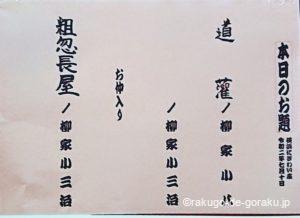 本日のお題
横浜にぎわい座
令和二年七月十日
道灌ノ柳家小
ノ柳家小三治
お仲入り
粗忽長屋ノ柳家小三治
©rakugo.de-goraku.jp